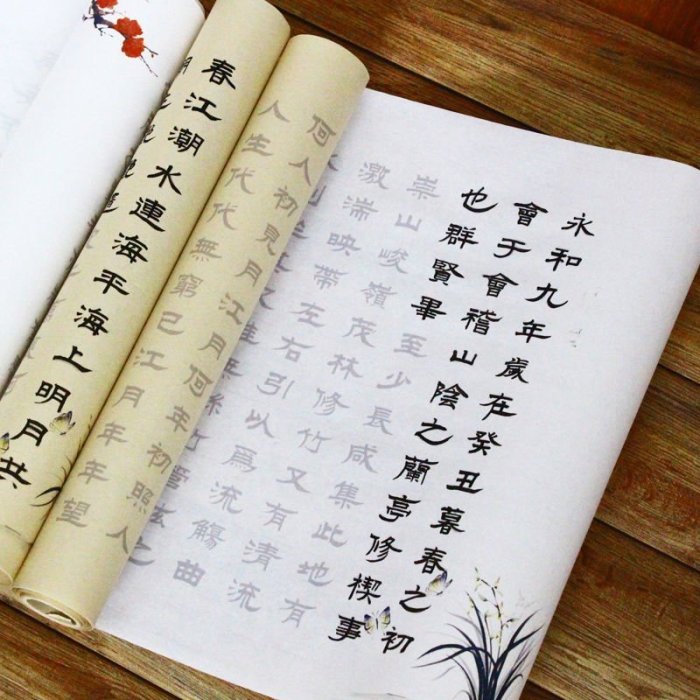 永和九年歲在癸丑暮春之初
會于會稽山陰之蘭亭修禊事
也群賢畢至少長咸集此地有
崇山峻嶺茂林修竹又有清流
激湍映帶左右引以爲流觴曲
竹管弦之
何人初見月江月何年初照人
人生代代無窮已江月年年望
春江潮水連海平海上明月共